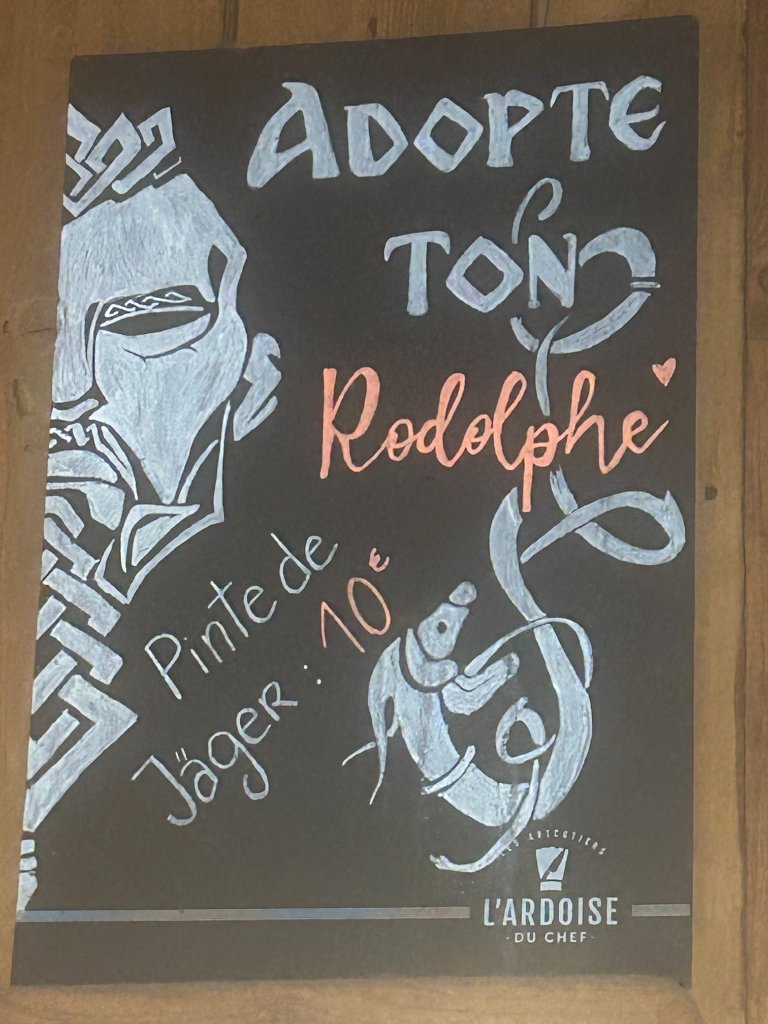 ADOPTE
TON
Rodolphe
Pinte de
Jäger : 10€
LES ARTCOTIERS
L'ARDOISE
DU CHEF